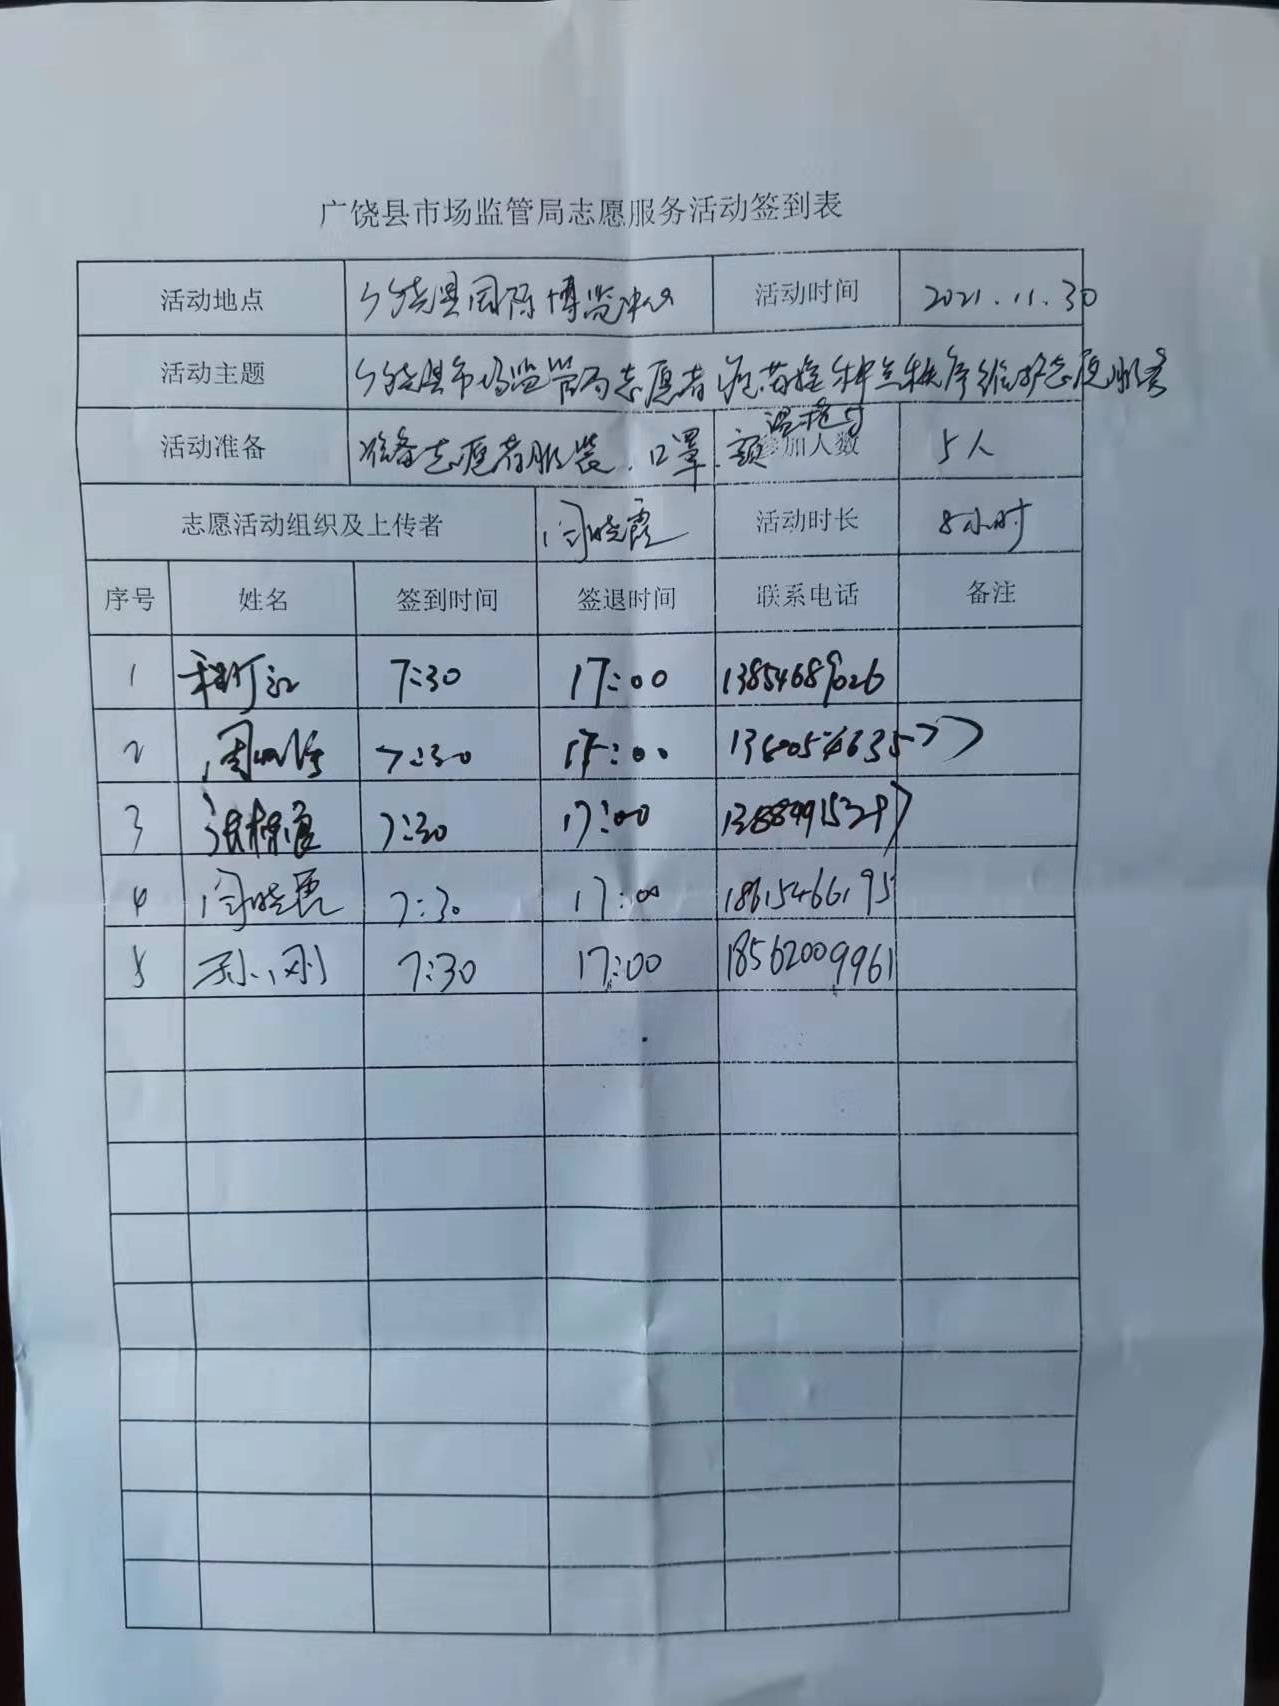 广饶县市场监管局志愿服务活动签到表
活动地点 广饶县国际博览中心 活动时间 2021.11.30
活动主题 广饶县市场监管局志愿者疫苗接种点秩序维护志愿服务
活动准备 准备志愿者服装、口罩、额温枪等 参加人数 5人
志愿活动组织及上传者 闫晓霞 活动时长 8小时
序号 姓名 签到时间 签退时间 联系电话 备注
1 7:30 17:00 13854689026
2 7:30 17:00
3 7:30 17:00
4 闫晓霞 7:30 17:00 18615466195
5 孙刚 7:30 17:00 18562009961